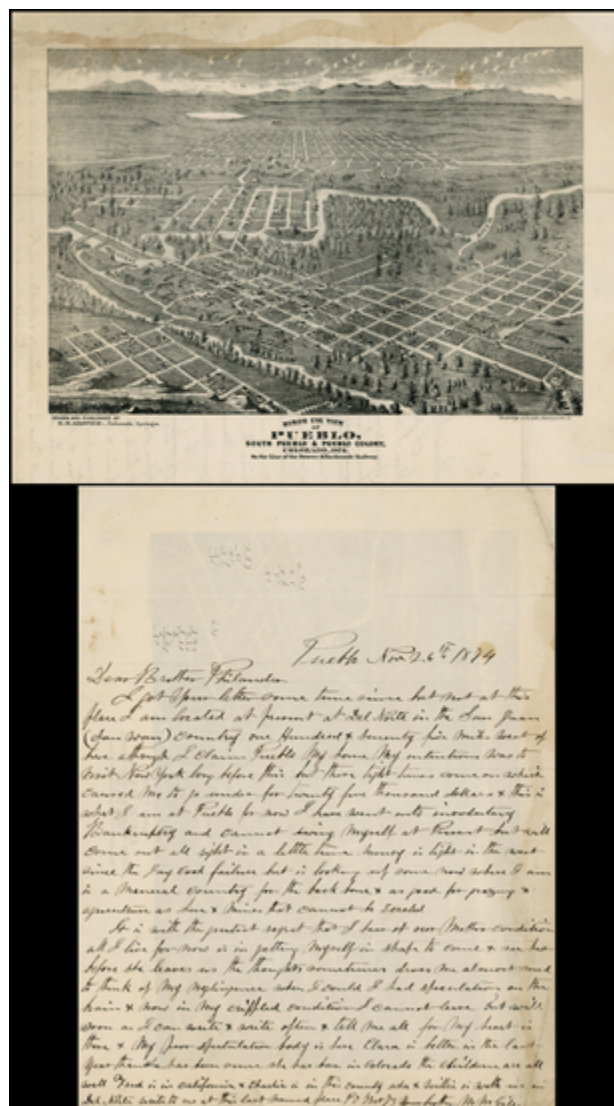 DRAWN AND PUBLISHED BY
Colorado Springs
BIRDS EYE VIEW
OF
PUEBLO,
SOUTH PUEBLO & PUEBLO COLONY,
COLORADO, 1874.
On the Line of the Denver & Rio Grande Railway
Pueblo Nov 26th 1874
Dear Brother Philander
I got your letter some time since but not at this
place I am located at present at Del Norte in the San Juan
(San wan) country one Hundred & seventy five miles west of
here although I claim Pueblo My home My intentions was to
visit New York long before this but these tight times came on which
caused me to go under for twenty five thousand dollars & this is
what I am at Pueblo for now I have went into involuntary
Bankruptcy and cannot swing Myself at Present but will
come out all right in a little time money is tight in the west
since the Jay Cook failure but is looking up some now where I am
is a Mineral country for the back bone & as good for grazing &
agriculture as here & Mines that cannot be
It is with the greatest regret that I hear of our Mothers condition
all I live for now is in getting Myself in shape to come & see her
before she leaves us the thoughts sometimes drives me almost mad
to think of My negligence when I could I had speculation on the
brain & now in My crippled condition I cannot leave but will
soon as I can write & write often & tell me all for My heart is
there & My poor speculation body is here Clara is better in the last
Year than she has been since she has been in Colorado the children are all
well Fred is in California & Charlie is in this county & is with us in
Del Norte write to me at this last named place P.O. Box